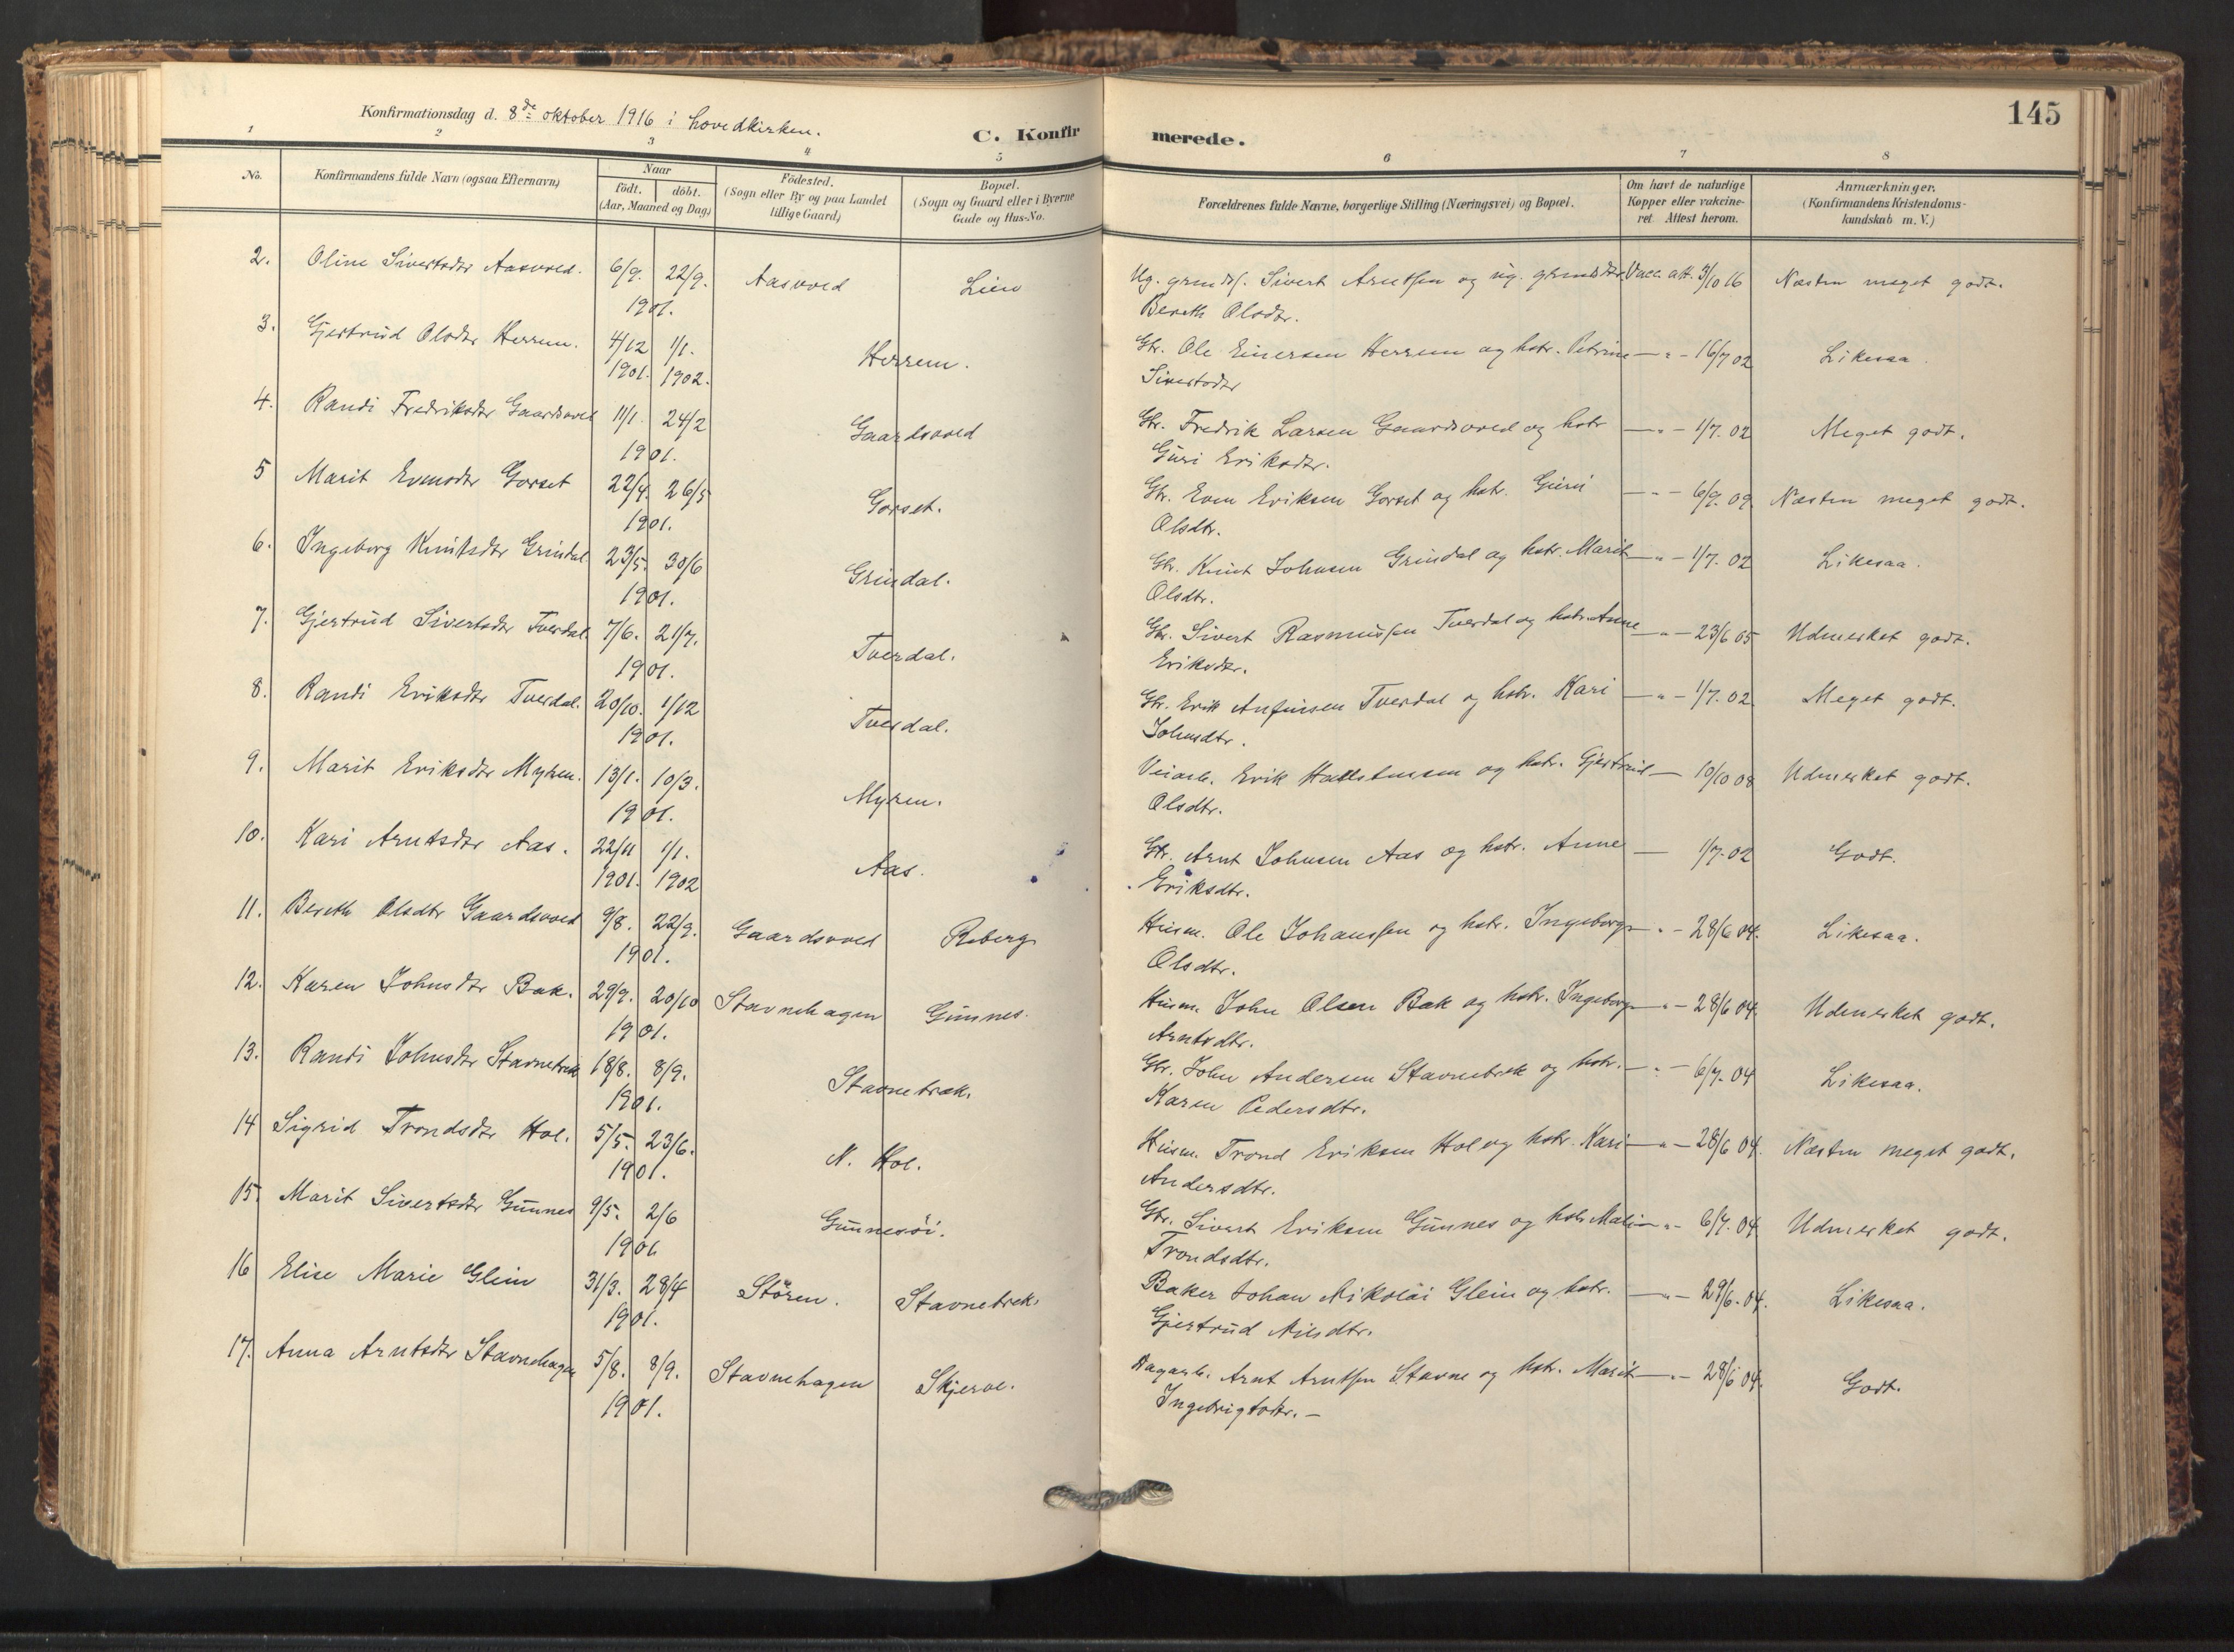 145
Konfirmationsdag d. 8de oktober 1916 i hovedkirken.
C. Konfirmerede.
1 2 3 4 5 6 7 8
No. Konfirmandens fulde Navn (ogsaa Efternavn) Naar födt. döbt. (Aar, Maaned og Dag) Födested. (Sogn eller By og paa Landet tillige Gaard) Bopæl. (Sogn og Gaard eller i Byerne Gade og Hus-No. Forældrenes fulde Navne, borgerlige Stilling (Næringsvei) og Bopæl. Om havt de naturlige Kopper eller vakcineret Attest herom. Anmærkninger. (Konfirmandens Kristendomskundskab m. V.)
2. Oline Sivertsdtr Aasvold. 6/9. 22/9. Aasvold Lien Ug. gaards. Sivert Arntsen og ug. Vacc. att. 3/10 16 Næsten meget godt.
1901. Bereth Olsdtr.
3. Gjertrud Olsdtr Herrem. 4/12 1/1. Herrem. Gbr. Ole Einersen Herrem og hstr. Petrine — " — 16/7 02 Likesaa
1901. 1902. Sivertsdtr
4. Randi Fredriksdtr Gaardsvold 11/1. 24/2 Gaardsvold Gbr. Fredrik Larsen Gaardsvold og hstr — " — 1/7. 02 Meget godt.
1901. Guri Eriksdtr.
5 Marit Evensdtr Gorset 22/4. 26/5 Gorset. Gbr. Even Eriksen Gorset og hstr. Guri — " — 6/9. 09 Næsten meget godt.
1901. Olsdtr.
6. Ingeborg Knutsdtr Grindal 23/5. 30/6 Grindal. Gbr. Knut Johnsen Grindal og hstr. Marit — " — 1/7. 02 Likesaa.
1901. Olsdtr.
7. Gjertrud Sivertsdtr Tverdal 7/6. 21/7. Tverdal. Gbr. Sivert Rasmussen Tverdal og hstr. Anne — " — 23/6 05 Udmerket godt.
1901. Eriksdtr.
8. Randi Eriksdtr Tverdal. 20/10. 1/12 Tverdal. Gbr. Erik Anfinsen Tverdal og hstr. Kari — " — 1/7. 02. Meget godt.
1901. Johnsdtr.
9. Marit Eriksdtr Myhren. 13/1. 10/3. Myhren. Veiarb. Erik Hallstensen og hstr. Gjertrud — 10/10 08 Udmerket godt.
1901. Olsdtr.
10. Kari Arntsdtr Aas. 22/11 1/1. Aas. Gbr. Arnt Johnsen Aas og hstr. Anne — 1/7. 02 Godt.
1901. 1902 Eriksdtr.
11. Bereth Olsdtr Gaardsvold 9/8. 22/9. Gaardsvold Roberg Husm. Ole Johansen og hstr. Ingeborg — " — 28/6 04. Likesaa.
1901. Olsdtr.
12. Karen Johnsdtr Bak. 29/9. 20/10 Stavnehagen Gunnes. Husm. John Olsen Bak og hstr. Ingeborg — " — 28/6 04. Udmerket godt.
1901. Arntsdtr.
13. Randi Johnsdtr Stavnebrek 18/8. 8/9. Stavnebrek. Gbr. John Andersen Stavnebrek og hstr. — " — 6/7. 04 Likesaa.
1901. Karen Pedersdtr.
14 Sigrid Trondsdtr Hol. 5/5. 23/6. N. Hol. Husm. Trond Eriksen Hol og hstr. Kari — " — 28/6 04. Næsten meget godt.
1901. Andersdtr.
15. Marit Sivertsdtr Gunnes 9/5. 2/6 Gunnesöi. Gbr. Sivert Eriksen Gunnes og hstr. Malin " — 6/7. 04. Udmerket godt.
1901 Trondsdtr.
16 Elise Marie Glein 31/3. 28/4 Stören. Stavnebrek. Baker Johan Nikolai Glein og hstr. — " — 29/6. 04. Likesaa.
1901. Gjertrud Nilsdtr.
17. Anna Arntsdtr Stavnehagen 5/8. 8/9. Stavnehagen Skjerve. Dagarb. Arnt Arntsen Stavne og hstr. Marit — " — 28/6 04. Godt.
1901. Ingebrigtsdtr. —